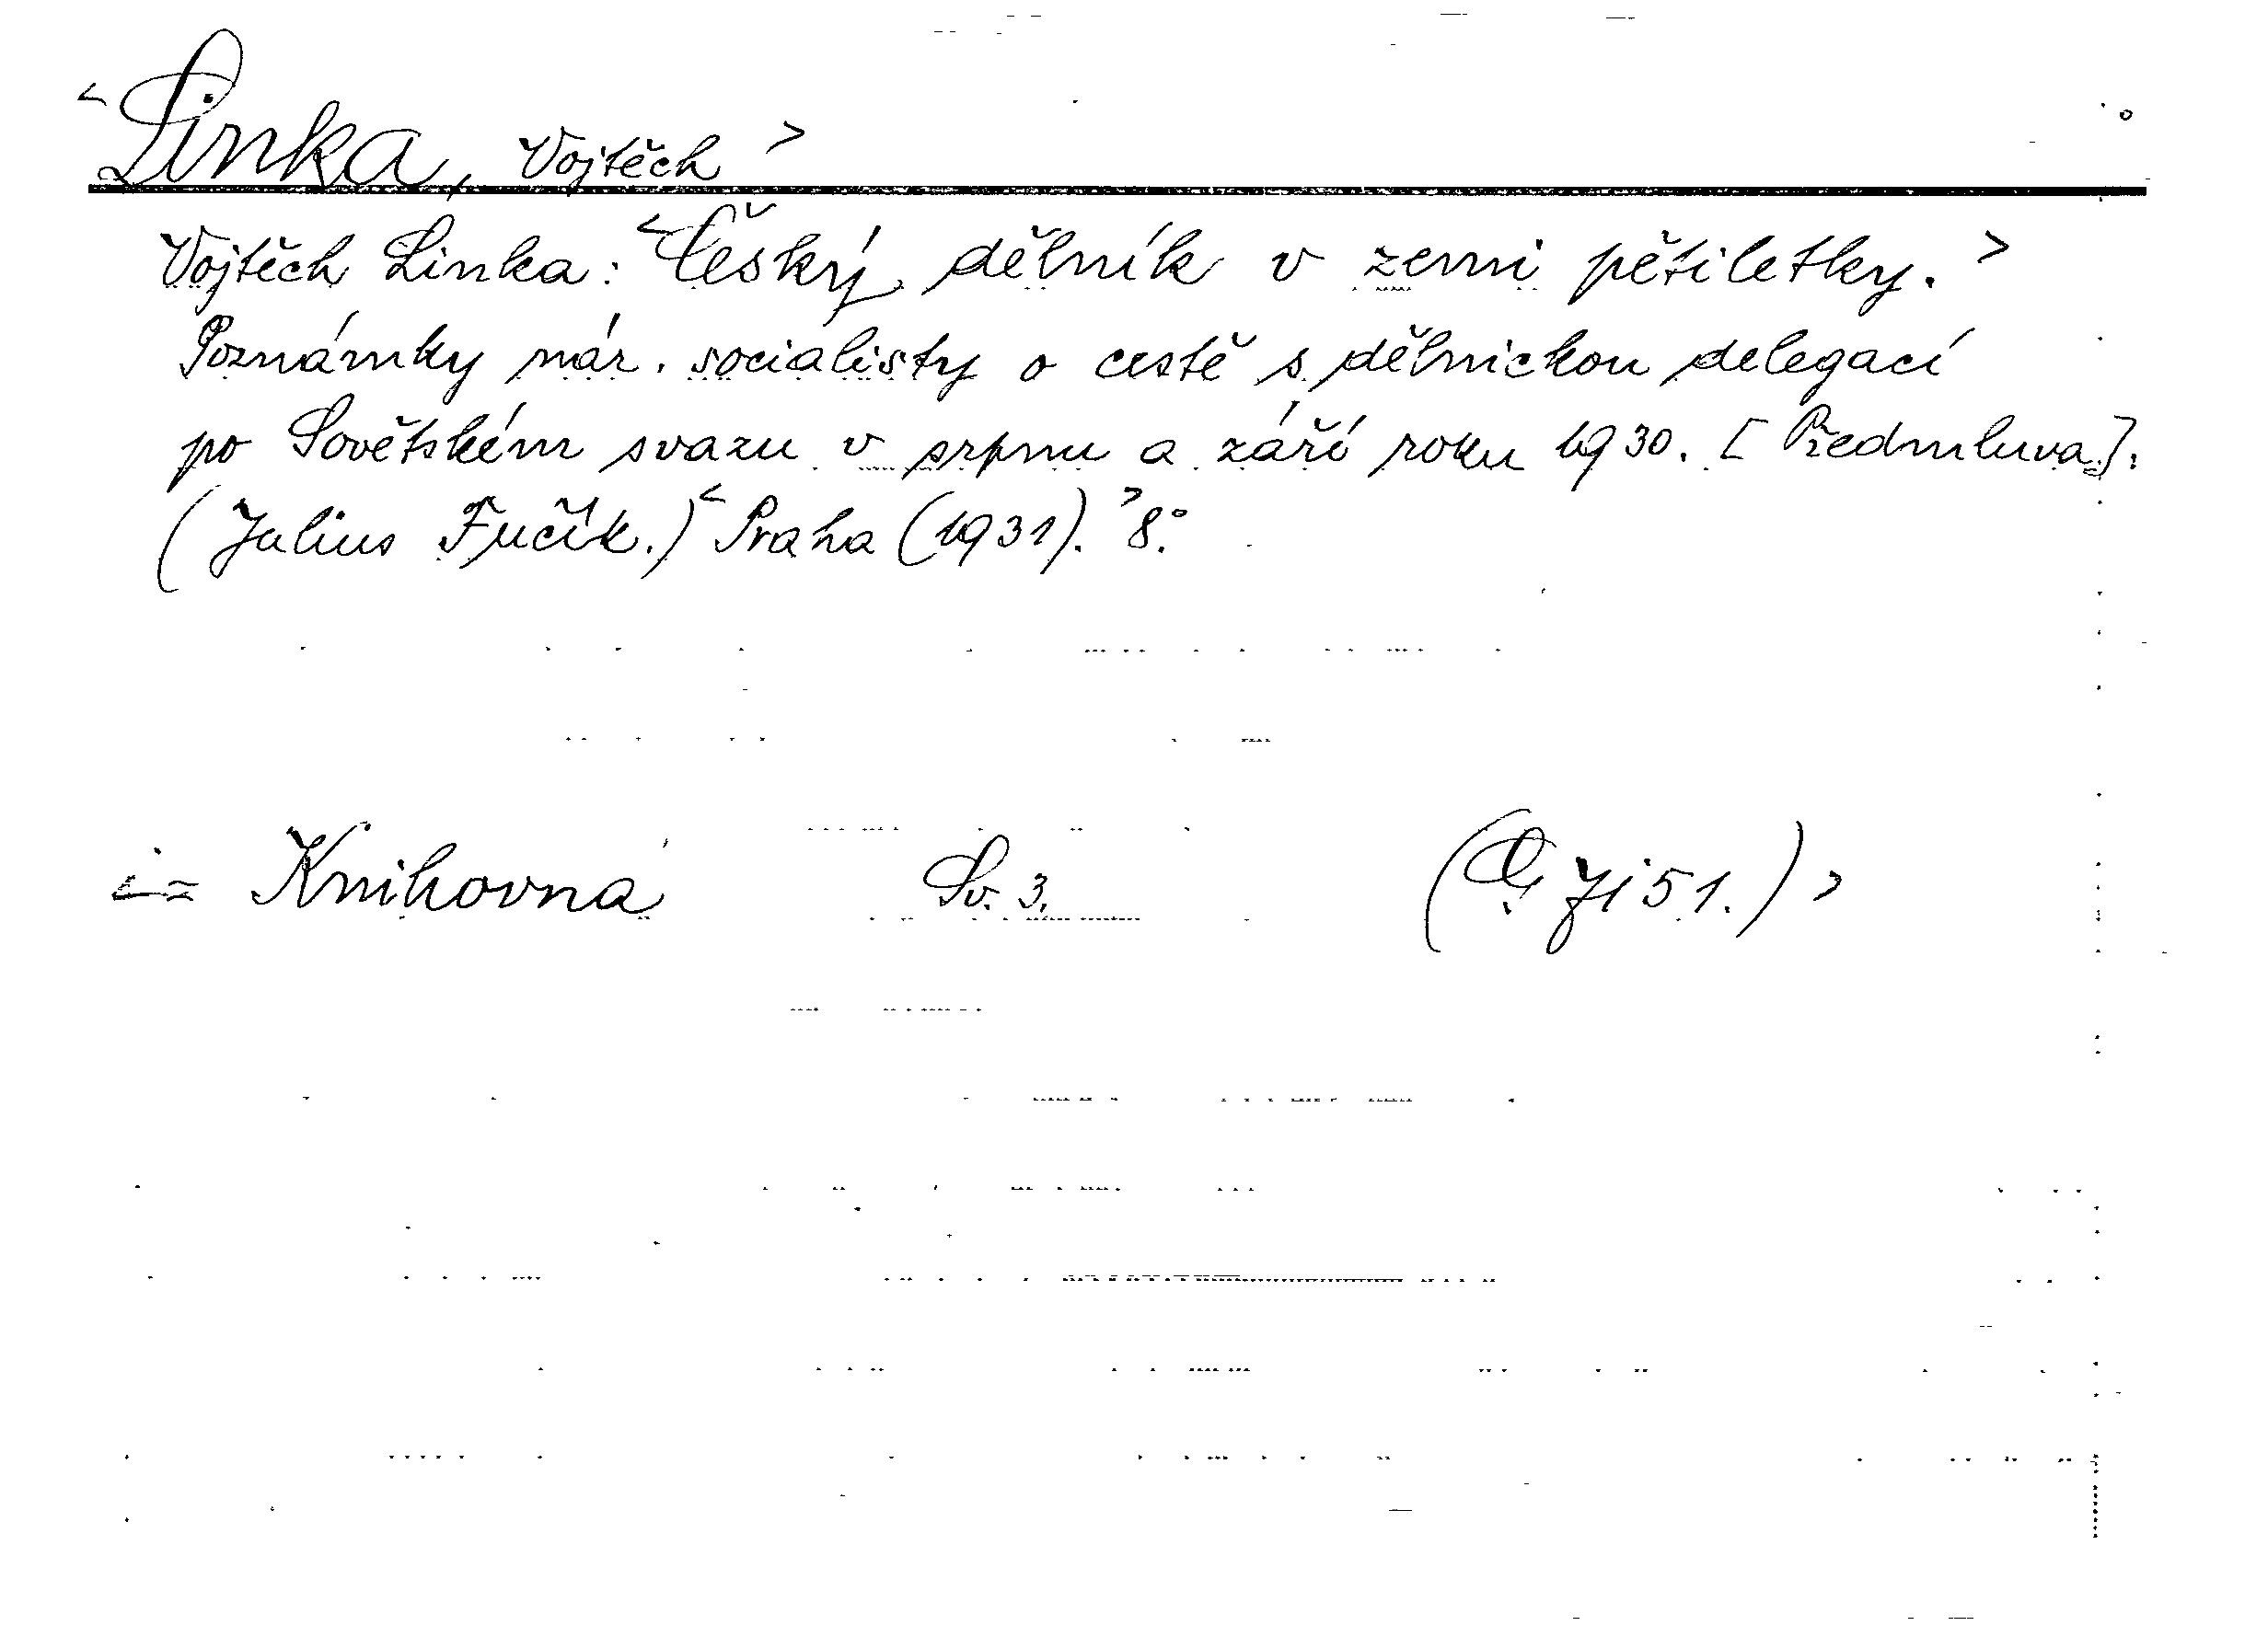 <Linka, Vojtěch>
Vojtěch Linka: <Český dělník v zemi pětiletky.>
Poznámky nár. socialisty o cestě s dělnickou delegací
po Sovětském svazu v srpnu a září roku 1930. [Předmluva].
(Julius Fučík.) <Praha (1931).> 8.°
<= Knihovna Sv. 3. 51.)>